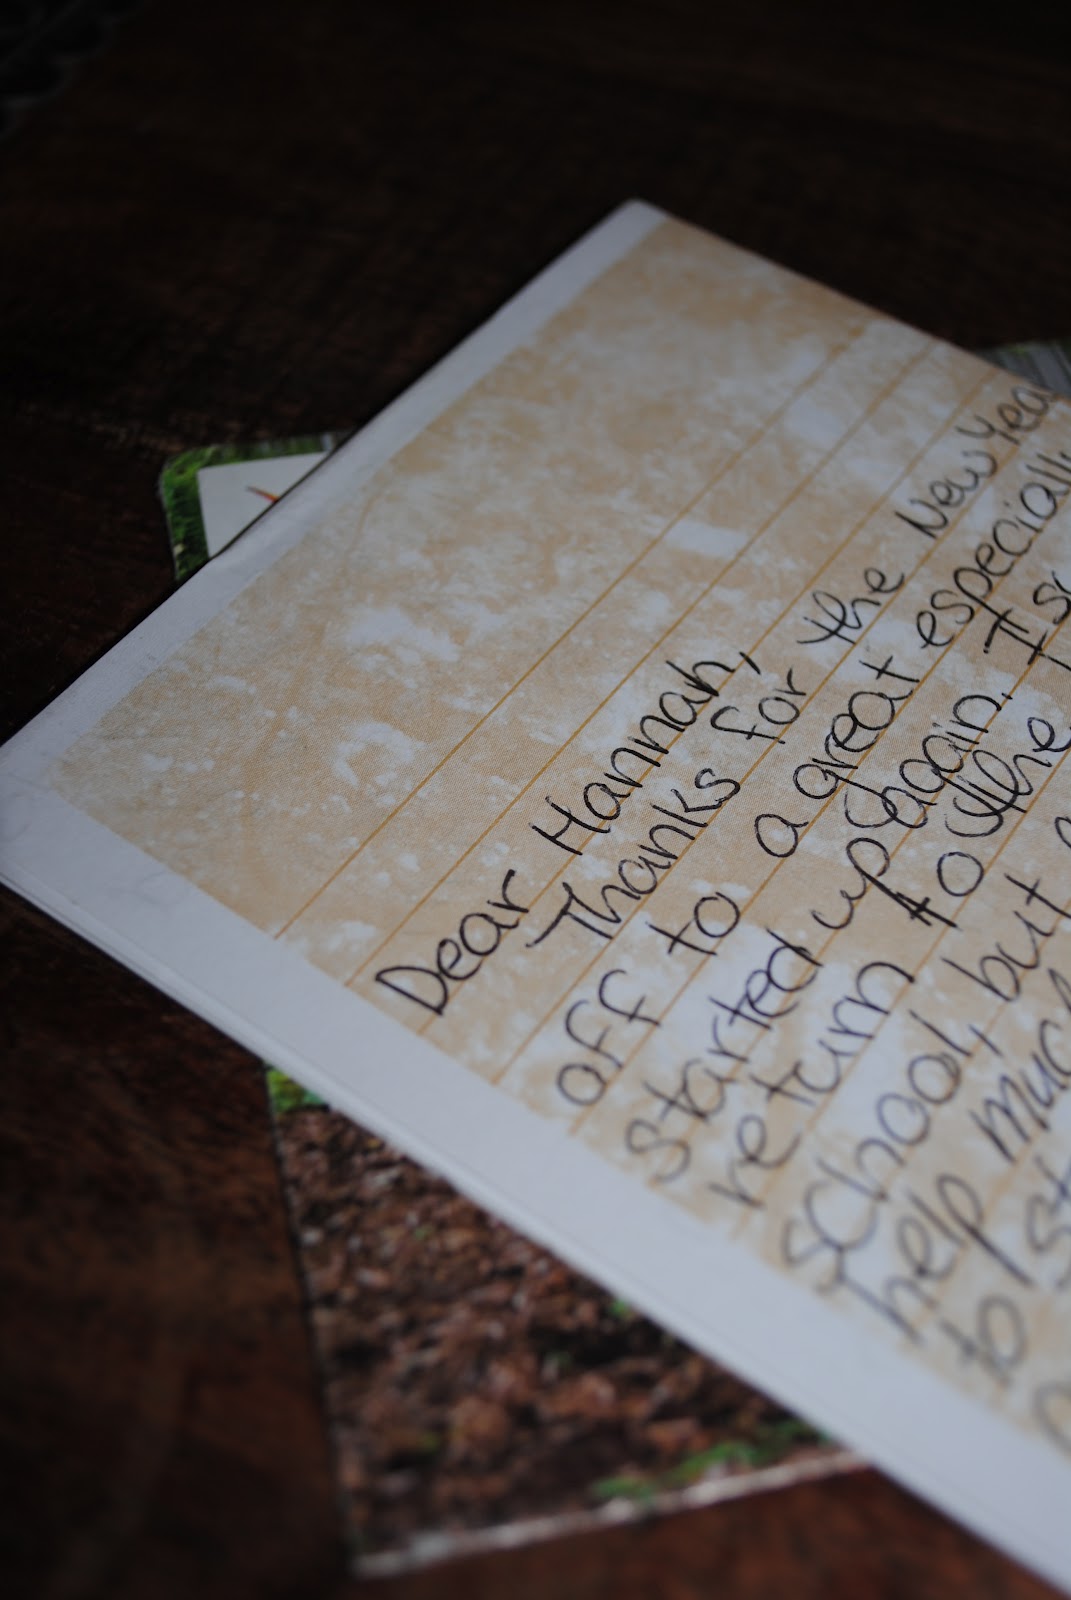 Dear Hannah,
Thanks for the New
off to a great especially
started up again. I
return to the
school, but
help
to